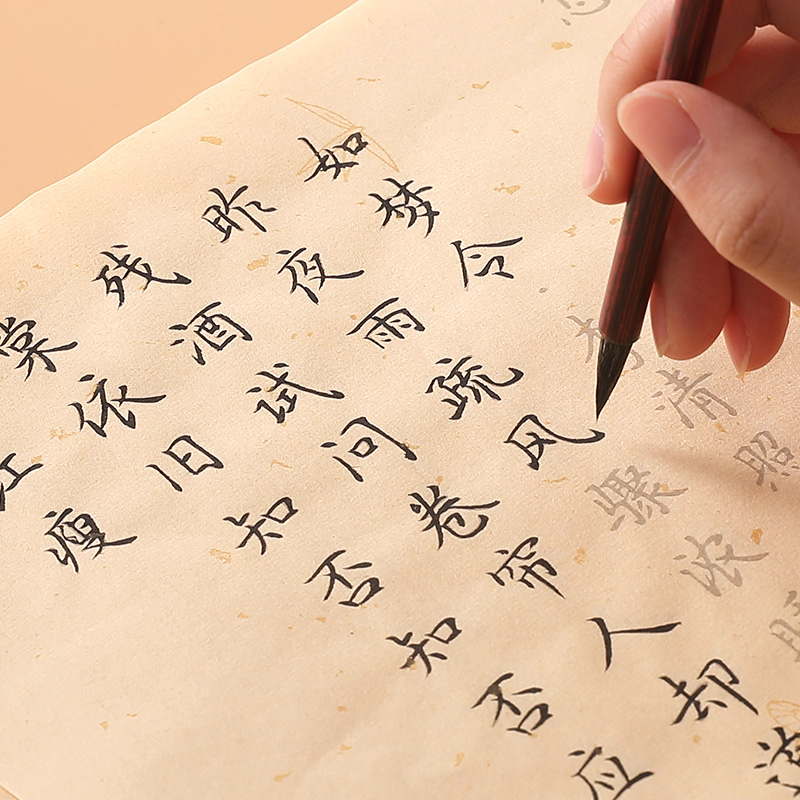 如梦令 李清照
昨夜雨疏风骤浓睡
残酒试问卷帘人却道
棠依旧知否知否应
红瘦